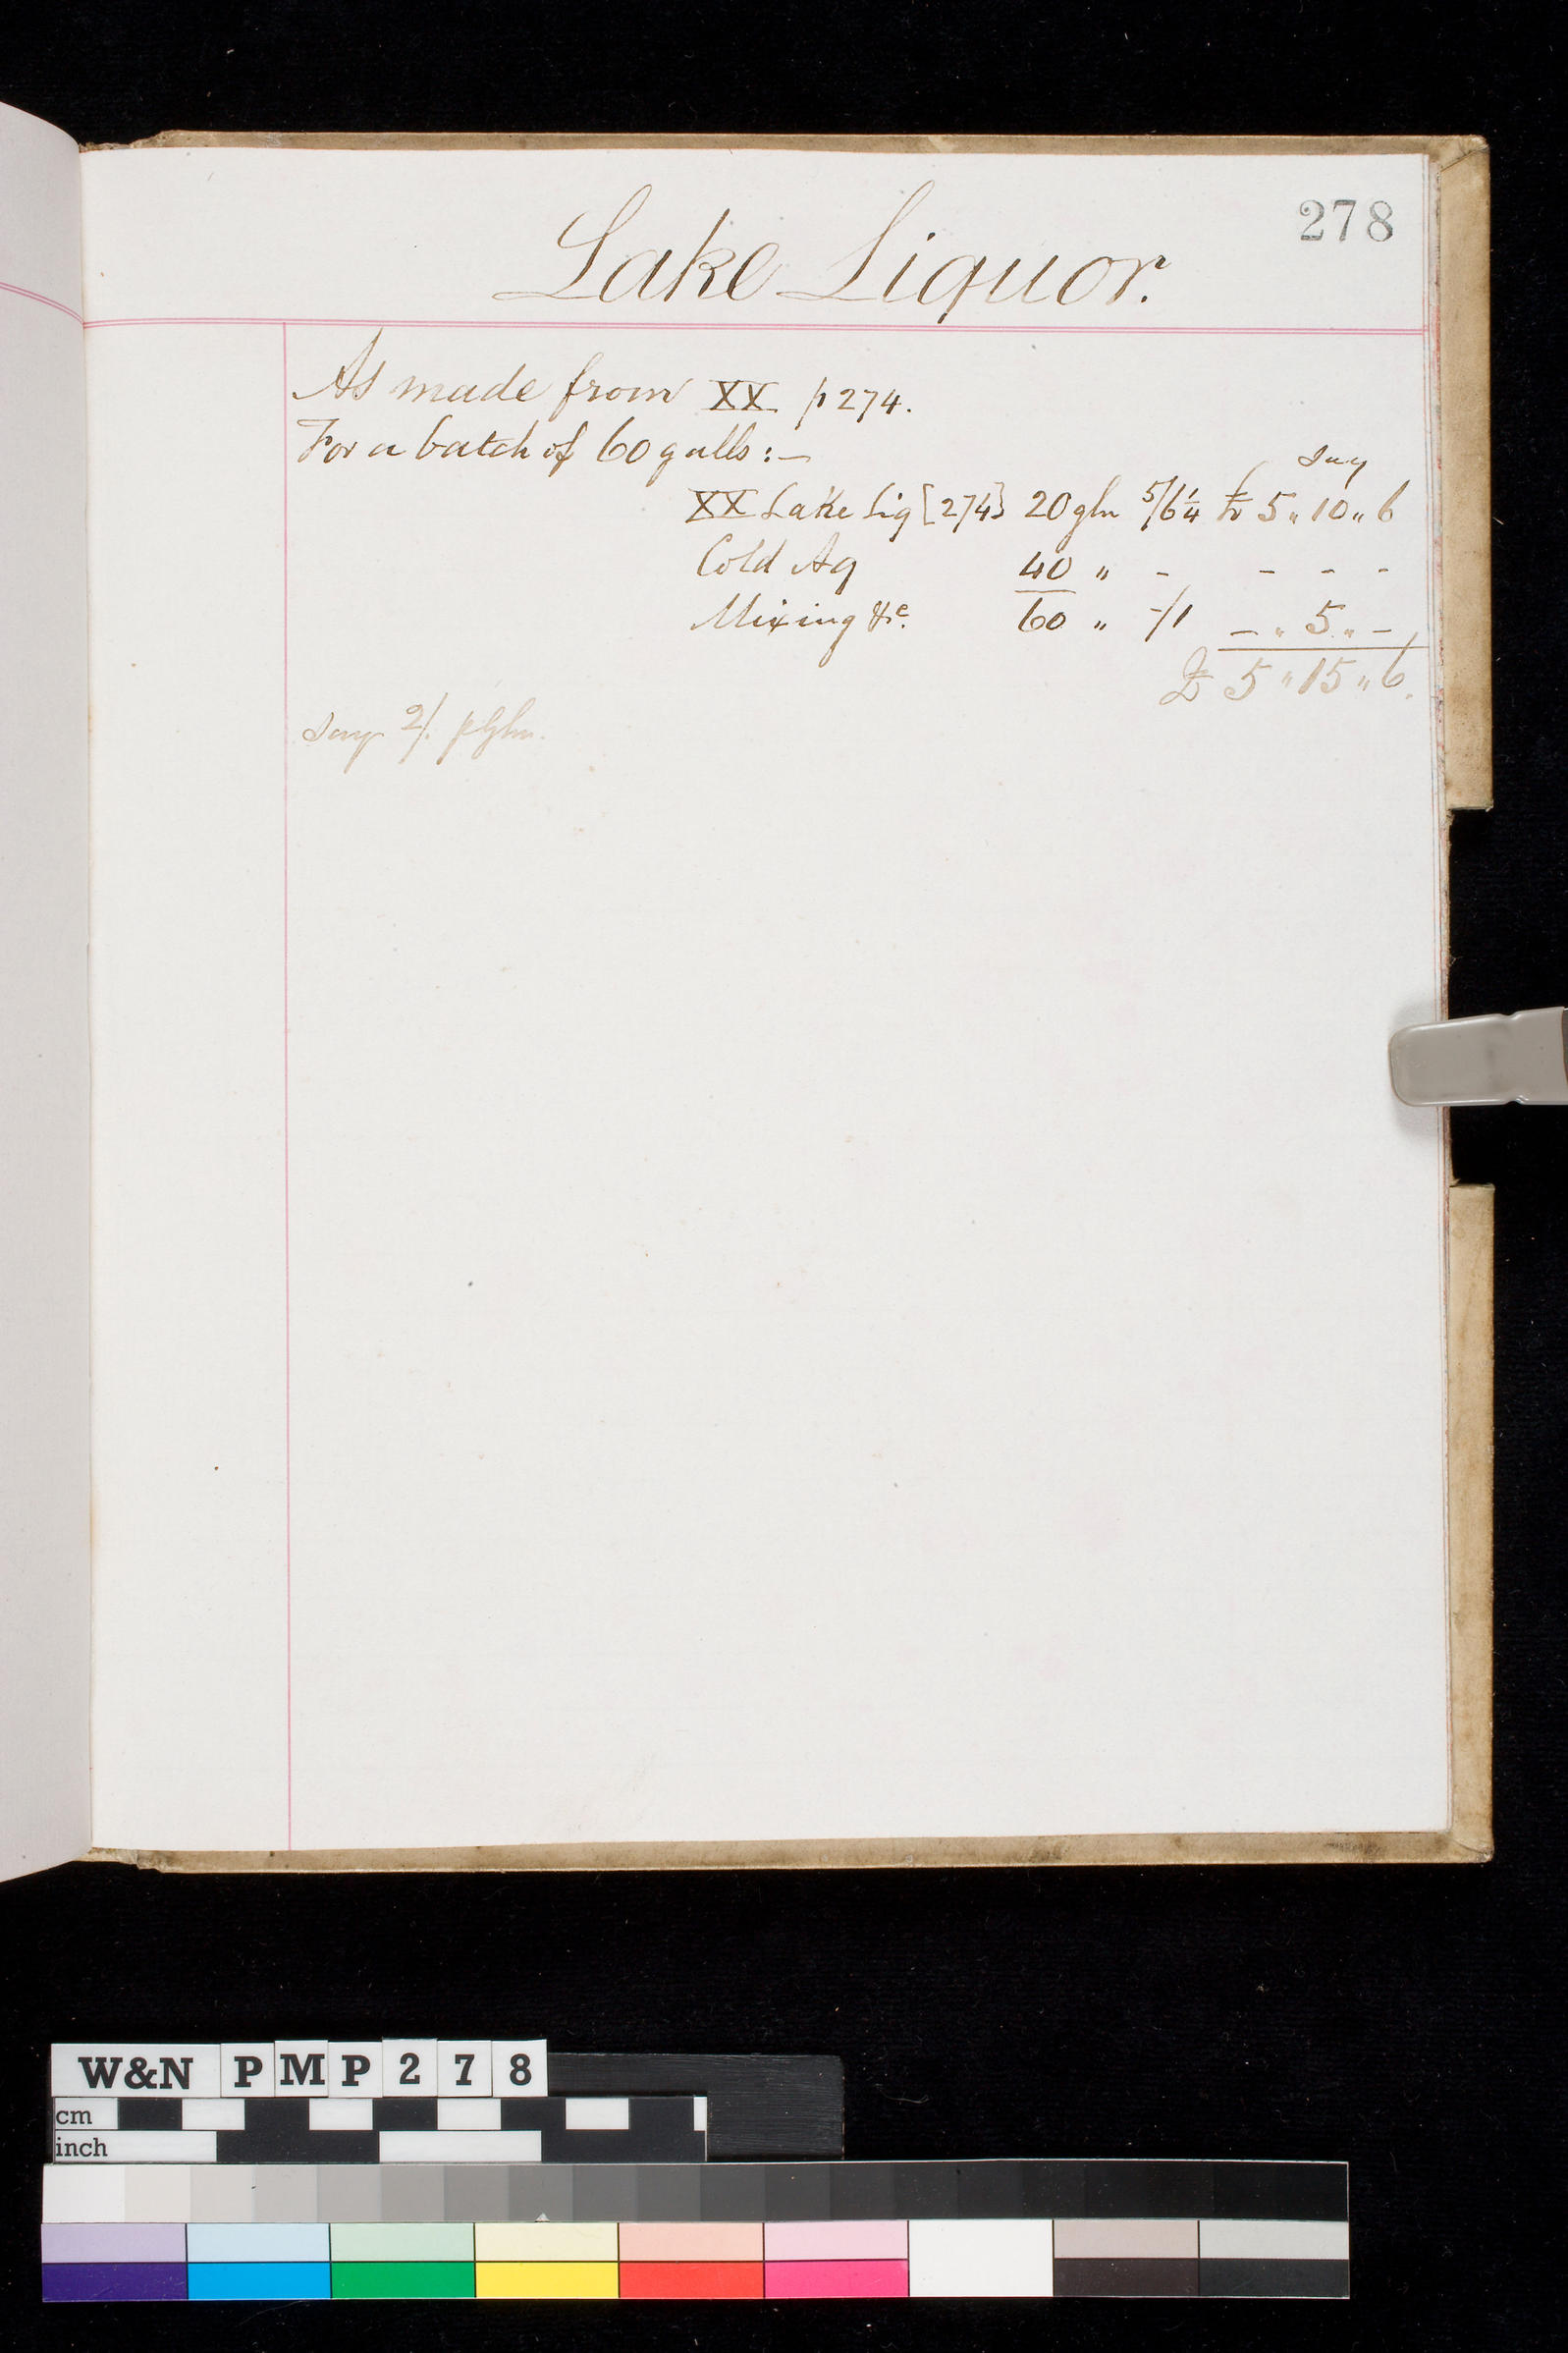 278
Lake Liquor.
As made from XX p 274.
For a batch of 60 galls :—
say
XX Lake Liq [274] 20 gln 5/6¼ £ 5 " 10 " 6
Cold Aq 40 " - - - -
Mixing &c. 60 " -/1 - " 5 " -
£ 5 " 15 " 6.
say 2/. p gln.
W&N PMP278
cm
inch